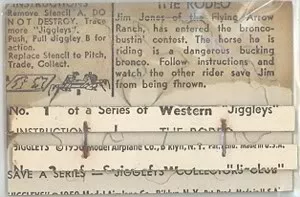 INSTRUCTIONS
Remove Stencil A. DO
NOT DESTROY. Trace
more "Jiggleys".
Push, Pull Jiggley B for
action.
Replace Stencil to Pitch,
Trade, Collect.
THE RODEO
Jim Jones of the Flying Arrow
Ranch, has entered the bronco-
bustin' contest. The horse he is
riding is a dangerous bucking
bronco. Follow instructions and
watch the other rider save Jim
from being thrown.
No. 1 of a Series of Western "Jiggleys"
INSTRUCTION THE RODEO
JIGGLEYS © 1950 Model Airplane Co., B'klyn, N.Y. Pat. Pend. Made in U.S.A.
SAVE A SERIES — JIGGLEYS COLLECTORS
JIGGLEYS © 1950 Model Airplane Co., N.Y. Pat. Pend.